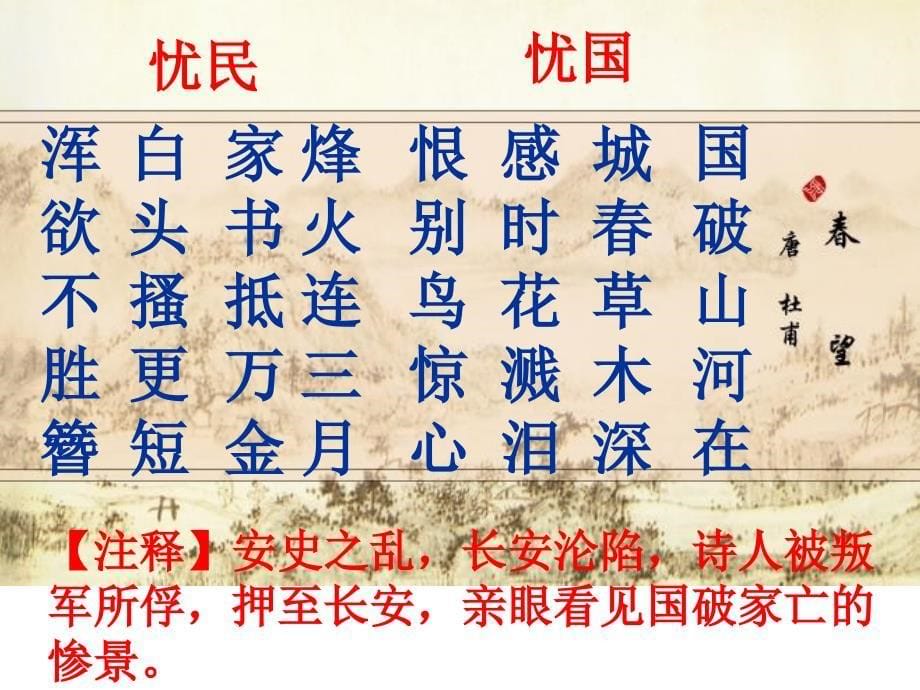 忧民
忧国
春望
唐 杜甫
国破山河在
城春草木深
感时花溅泪
恨别鸟惊心
烽火连三月
家书抵万金
白头搔更短
浑欲不胜簪
【注释】安史之乱，长安沦陷，诗人被叛
军所俘，押至长安，亲眼看见国破家亡的
惨景。